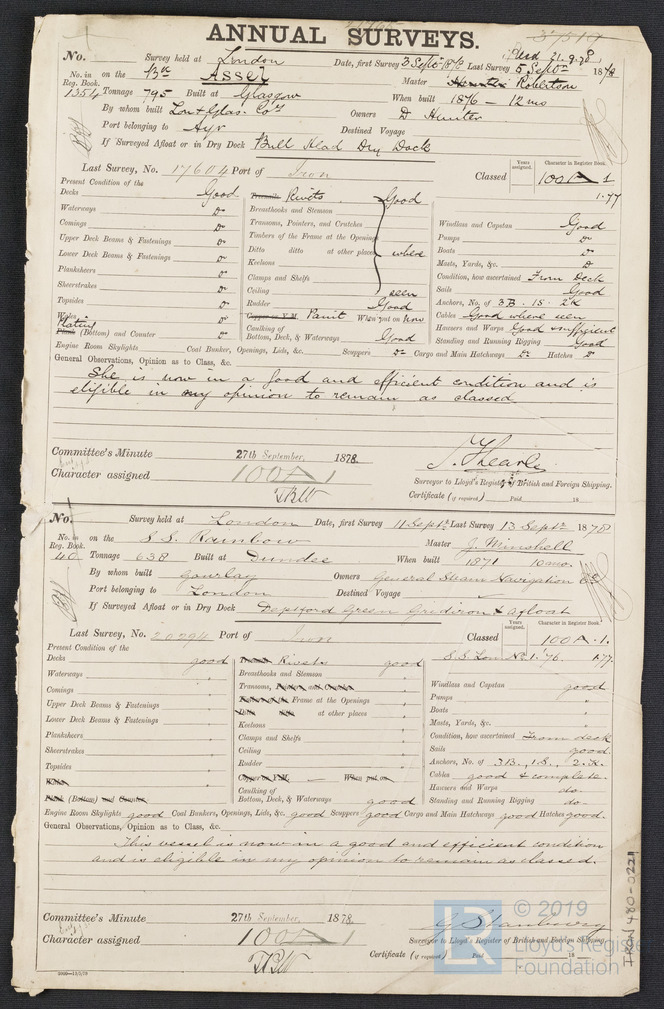 ANNUAL SURVEYS.
No. Survey held at London Date, first Survey 3 Septr 1878 Last Survey 5 Septr 1878
No. in Reg. Book. on the Bk ASSEY Master Robertson
1354 Tonnage 795 Built at Glasgow When built 1876 - 12 mo
By whom built Lon & Glas. Coy Owners D Hunter
Port belonging to Ayr Destined Voyage
If Surveyed Afloat or in Dry Dock Bull Head Dry Dock
Last Survey, No. 17604 Port of Iron Classed 100 A 1
Years assigned. Character in Register Book.
1.77
Present Condition of the
Decks Good
Waterways Do
Comings Do
Upper Deck Beams & Fastenings Do
Lower Deck Beams & Fastenings Do
Planksheers Do
Sheerstrakes Do
Topsides Do
Wales Do
Plating (Bottom) and Counter Do
Rivets Good
Breasthooks and Stemson
Transoms, Pointers, and Crutches
Timbers of the Frame at the Openings
Ditto ditto at other places where
Keelsons
Clamps and Shelfs
Ceiling seen
Rudder Good
Copper or Y.M. Paint When put on Now
Caulking of Bottom, Deck, & Waterways Good
Windlass and Capstan Good
Pumps Do
Boats Do
Masts, Yards, &c. Do
Condition, how ascertained From Deck
Sails Good
Anchors, No. of 3B. 1S. 2K
Cables Good where seen
Hawsers and Warps Good & sufficient
Standing and Running Rigging Good
Engine Room Skylights Coal Bunker, Openings, Lids, &c. Scuppers Do Cargo and Main Hatchways Do Hatches Do
General Observations, Opinion as to Class, &c.
She is now in a good and efficient condition and is
eligible in my opinion to remain as classed
Committee's Minute 27th September, 1878.
Character assigned 100 A 1
Surveyor to Lloyd's Register of British and Foreign Shipping.
Certificate (if required) Paid 18
No. Survey held at London Date, first Survey 11 Septr Last Survey 13 Septr 1878
No. in Reg. Book. on the S.S. Rainbow Master J. Winshell
40 Tonnage 638 Built at Dundee When built 1871 10 mo.
By whom built Gourlay Owners General Steam Navigation Co
Port belonging to London Destined Voyage
If Surveyed Afloat or in Dry Dock Deptford Green Gridiron & afloat
Last Survey, No. 20294 Port of Iron Classed 100 A. 1.
Years assigned. Character in Register Book.
S.S. Lon No. 1. '76. 1.77.
Present Condition of the
Decks good
Waterways "
Comings "
Upper Deck Beams & Fastenings "
Lower Deck Beams & Fastenings "
Planksheers "
Sheerstrakes "
Topsides "
Rivets good
Breasthooks and Stemson "
Transoms,
Frame at the Openings "
at other places "
Keelsons "
Clamps and Shelfs "
Ceiling "
Rudder "
Caulking of Bottom, Deck, & Waterways good
Windlass and Capstan good
Pumps "
Boats "
Masts, Yards, &c. "
Condition, how ascertained From deck
Sails good.
Anchors, No. of 3B., 1.S., 2.K.
Cables good & complete.
Hawsers and Warps do.
Standing and Running Rigging do.
Engine Room Skylights good Coal Bunkers, Openings, Lids, &c. good Scuppers good Cargo and Main Hatchways good Hatches good.
General Observations, Opinion as to Class, &c.
This vessel is now in a good and efficient condition
and is eligible in my opinion to remain as classed.
Committee's Minute 27th September, 1878
Character assigned 100 A 1
Surveyor to Lloyd's Register of British and Foreign Shipping.
Certificate (if required) Paid 18
IRON 480-0221
© 2019
Lloyd's Register
Foundation
LR